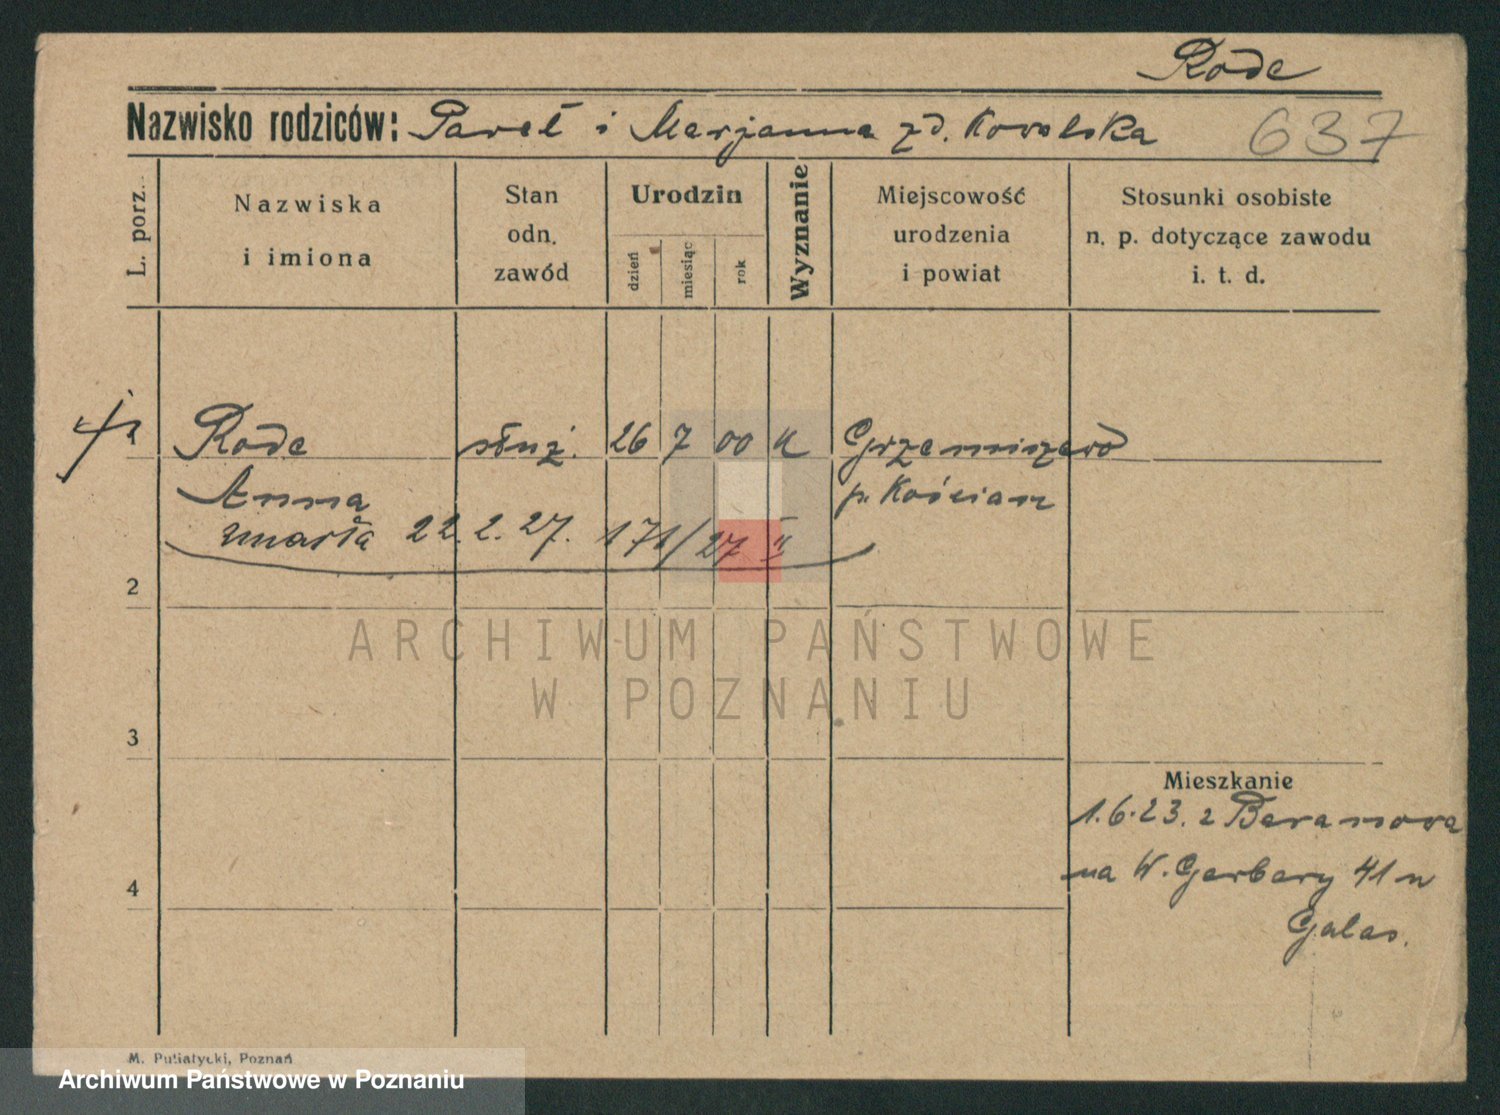 Rode
Nazwisko rodziców: Paweł i Marjanna zd. Kowalska 637
L. porz.
Nazwiska
i imiona
Stan
odn.
zawód
Urodzin
dzień
miesiąc
rok
Wyznanie
Miejscowość
urodzenia
i powiat
Stosunki osobiste
n. p. dotyczące zawodu
i. t. d.
Rode służ. 26 7 00 K
Anna p. Kościan
zmarła 22.2.27. 171/27 II
2
ARCHIWUM PAŃSTWOWE
W POZNANIU
3
Mieszkanie
1.6.23. z Baranowa
4
na W. Garbary 41 u
Galas.
M. Putiatycki, Poznań
Archiwum Państwowe w Poznaniu